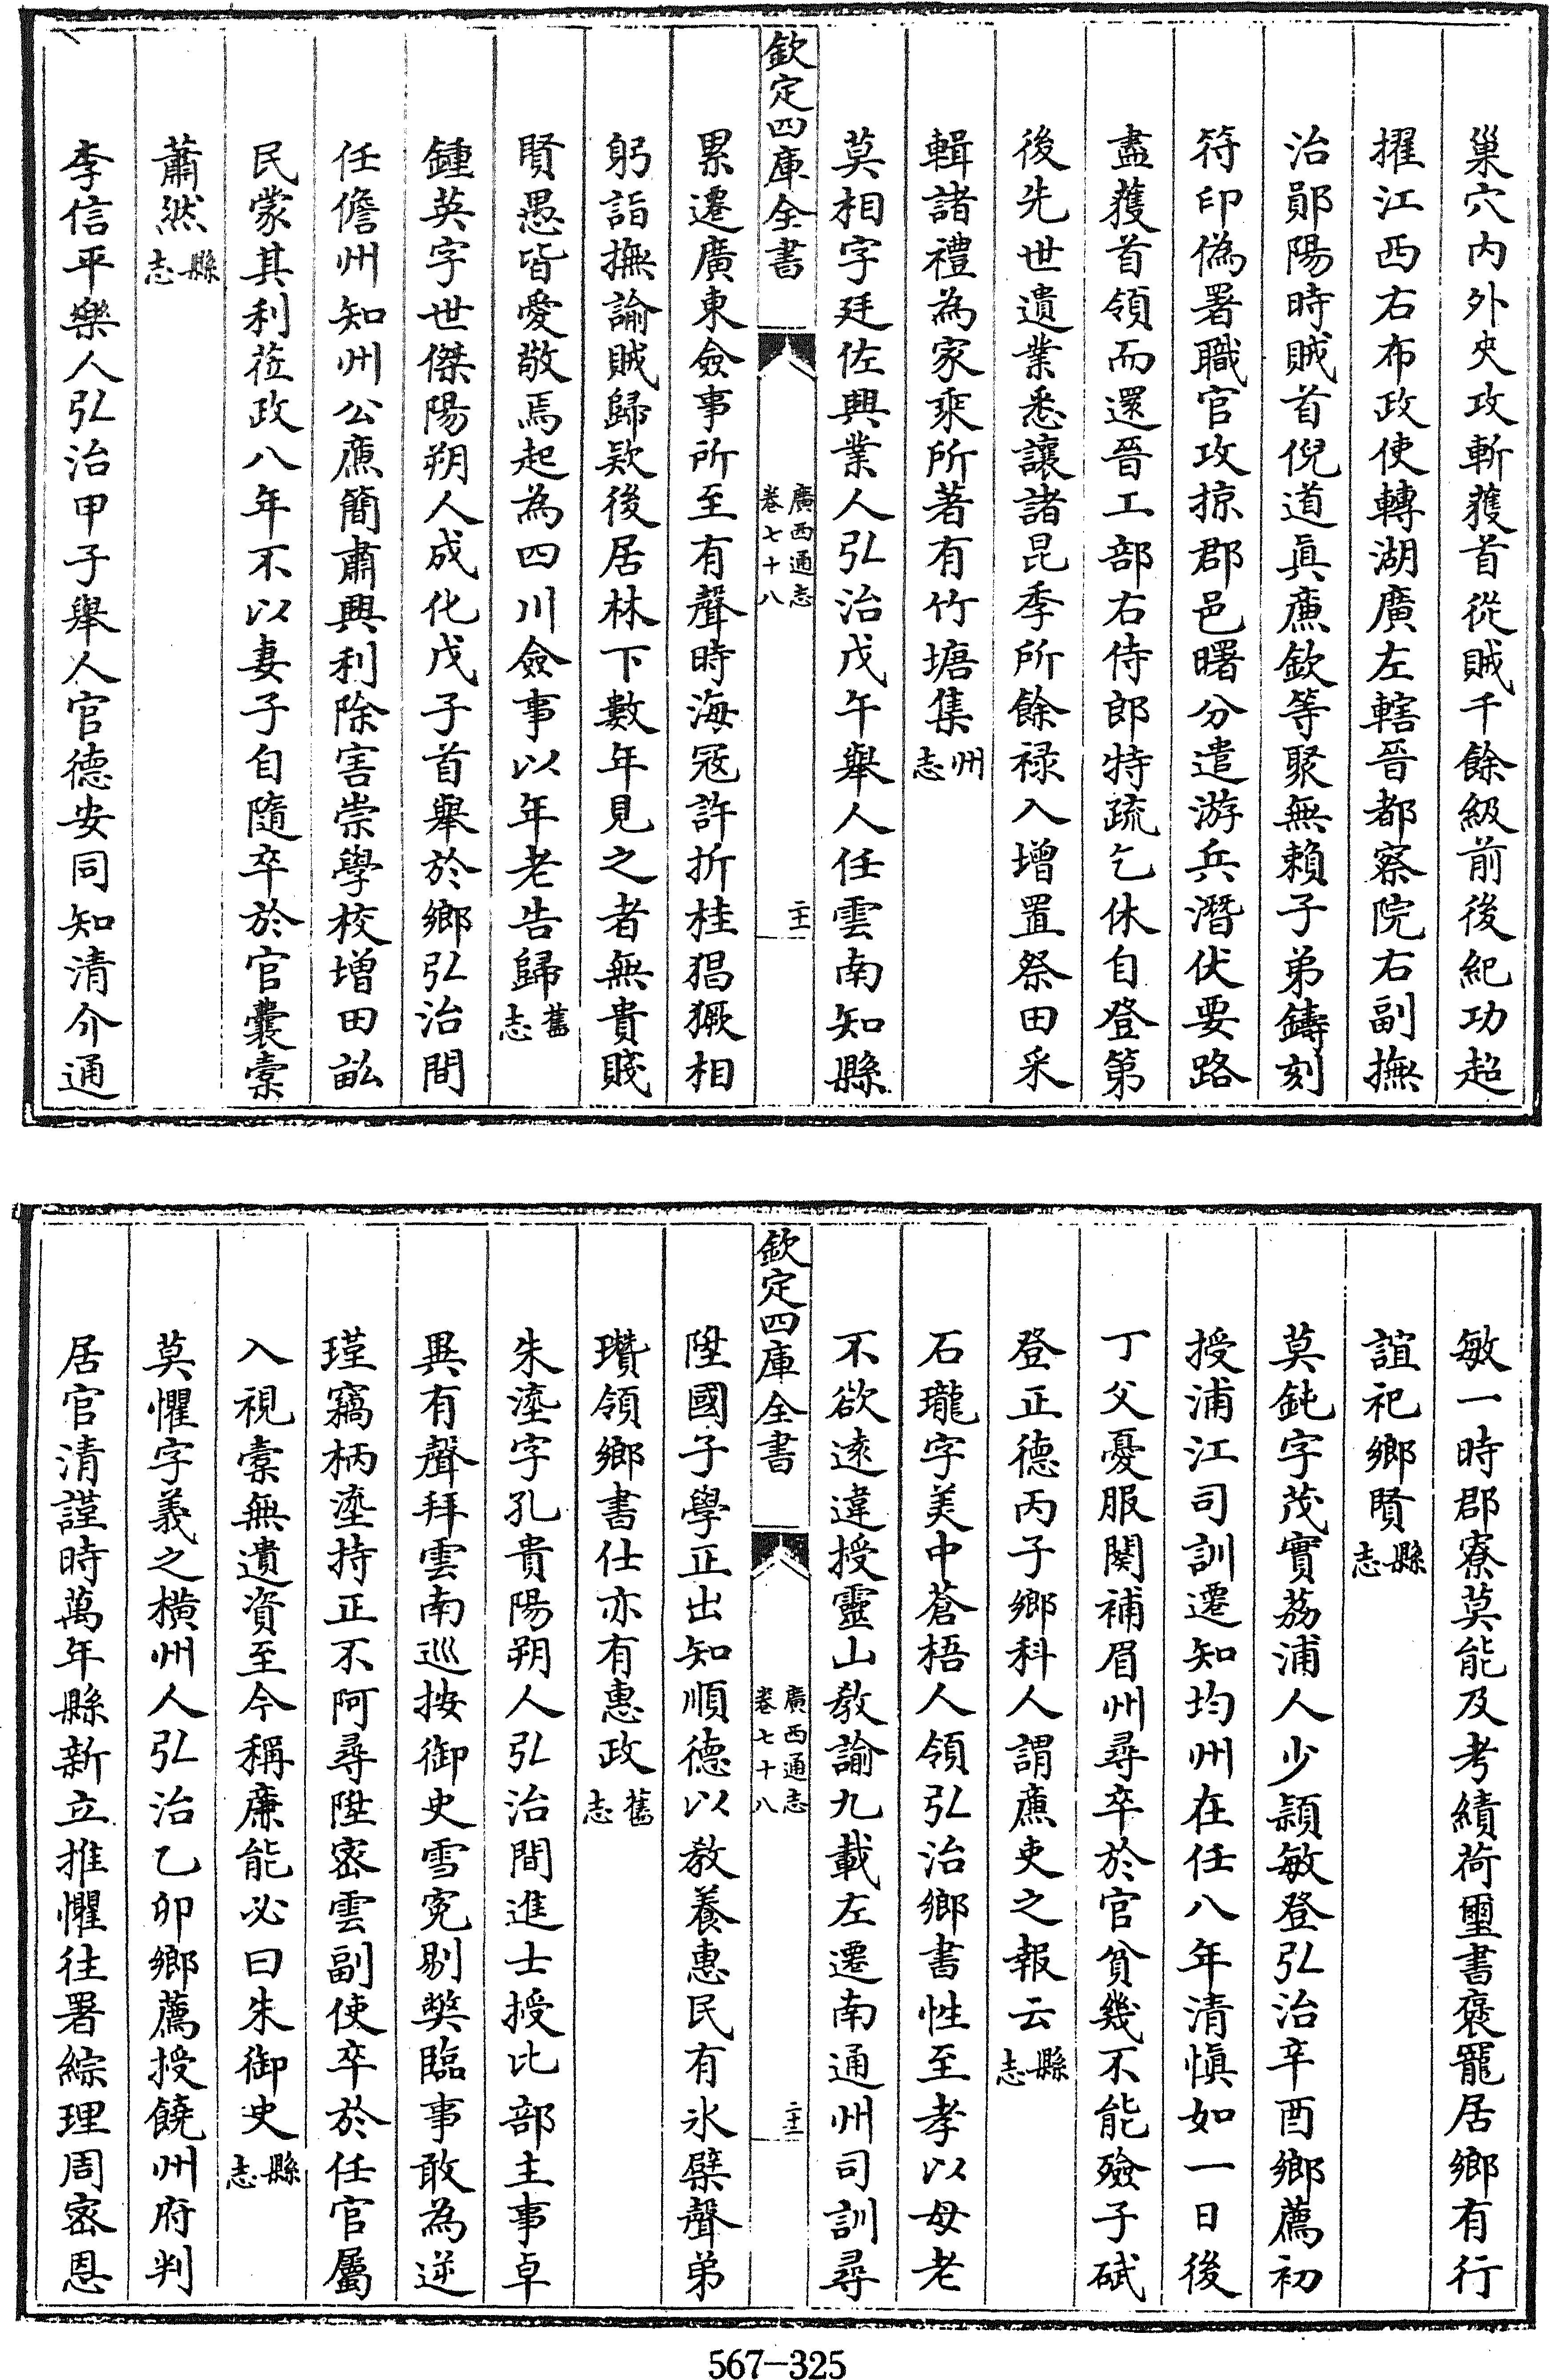 巢穴内外夾攻斬獲首從賊千餘級前後紀功超
擢江西右布政使轉湖廣左轄晉都察院右副撫
治鄖陽時賊首倪道真廉欽等聚無賴子弟鑄刻
符印偽署職官攻掠郡邑曙分遣游兵潛伏要路
盡獲首領而還晉工部右侍郎特疏乞休自登第
後先世遺業悉讓諸昆季所餘禄入增置祭田采
輯諸禮為家乘所著有竹塘集州志
莫相字廷佐興業人弘治戊午舉人任雲南知縣
欽定四庫全書
廣西通志
卷七十八
二十一
累遷廣東僉事所至有聲時海寇許折桂猖獗相
躬詣撫諭賊歸欵後居林下數年見之者無貴賤
賢愚皆愛敬焉起為四川僉事以年老告歸舊志
鍾英字世傑陽朔人成化戊子首舉於鄉弘治間
任儋州知州公廉簡肅興利除害崇學校增田畝
民蒙其利莅政八年不以妻子自隨卒於官囊橐
蕭然縣志
李信平樂人弘治甲子舉人官德安同知清介通
敏一時郡寮莫能及考績荷璽書褒寵居鄉有行
誼祀鄉賢縣志
莫鈍字茂實荔浦人少穎敏登弘治辛酉鄉薦初
授浦江司訓遷知均州在任八年清慎如一日後
丁父憂服闋補眉州尋卒於官貧幾不能殮子砥
登正德丙子鄉科人謂廉吏之報云縣志
石瓏字美中蒼梧人領弘治鄉書性至孝以母老
不欲遠違授靈山教諭九載左遷南通州司訓尋
欽定四庫全書
廣西通志
卷七十八
二十二
陞國子學正出知順德以教養惠民有氷檗聲弟
瓚領鄉書仕亦有惠政舊志
朱瀅字孔貴陽朔人弘治間進士授比部主事卓
異有聲拜雲南巡按御史雪寃剔獘臨事敢為逆
瑾竊柄瀅持正不阿尋陞密雲副使卒於任官屬
入視橐無遺資至今稱廉能必曰朱御史縣志
莫懼字義之橫州人弘治乙卯鄉薦授饒州府判
居官清謹時萬年縣新立推懼往署綜理周密恩
567-325